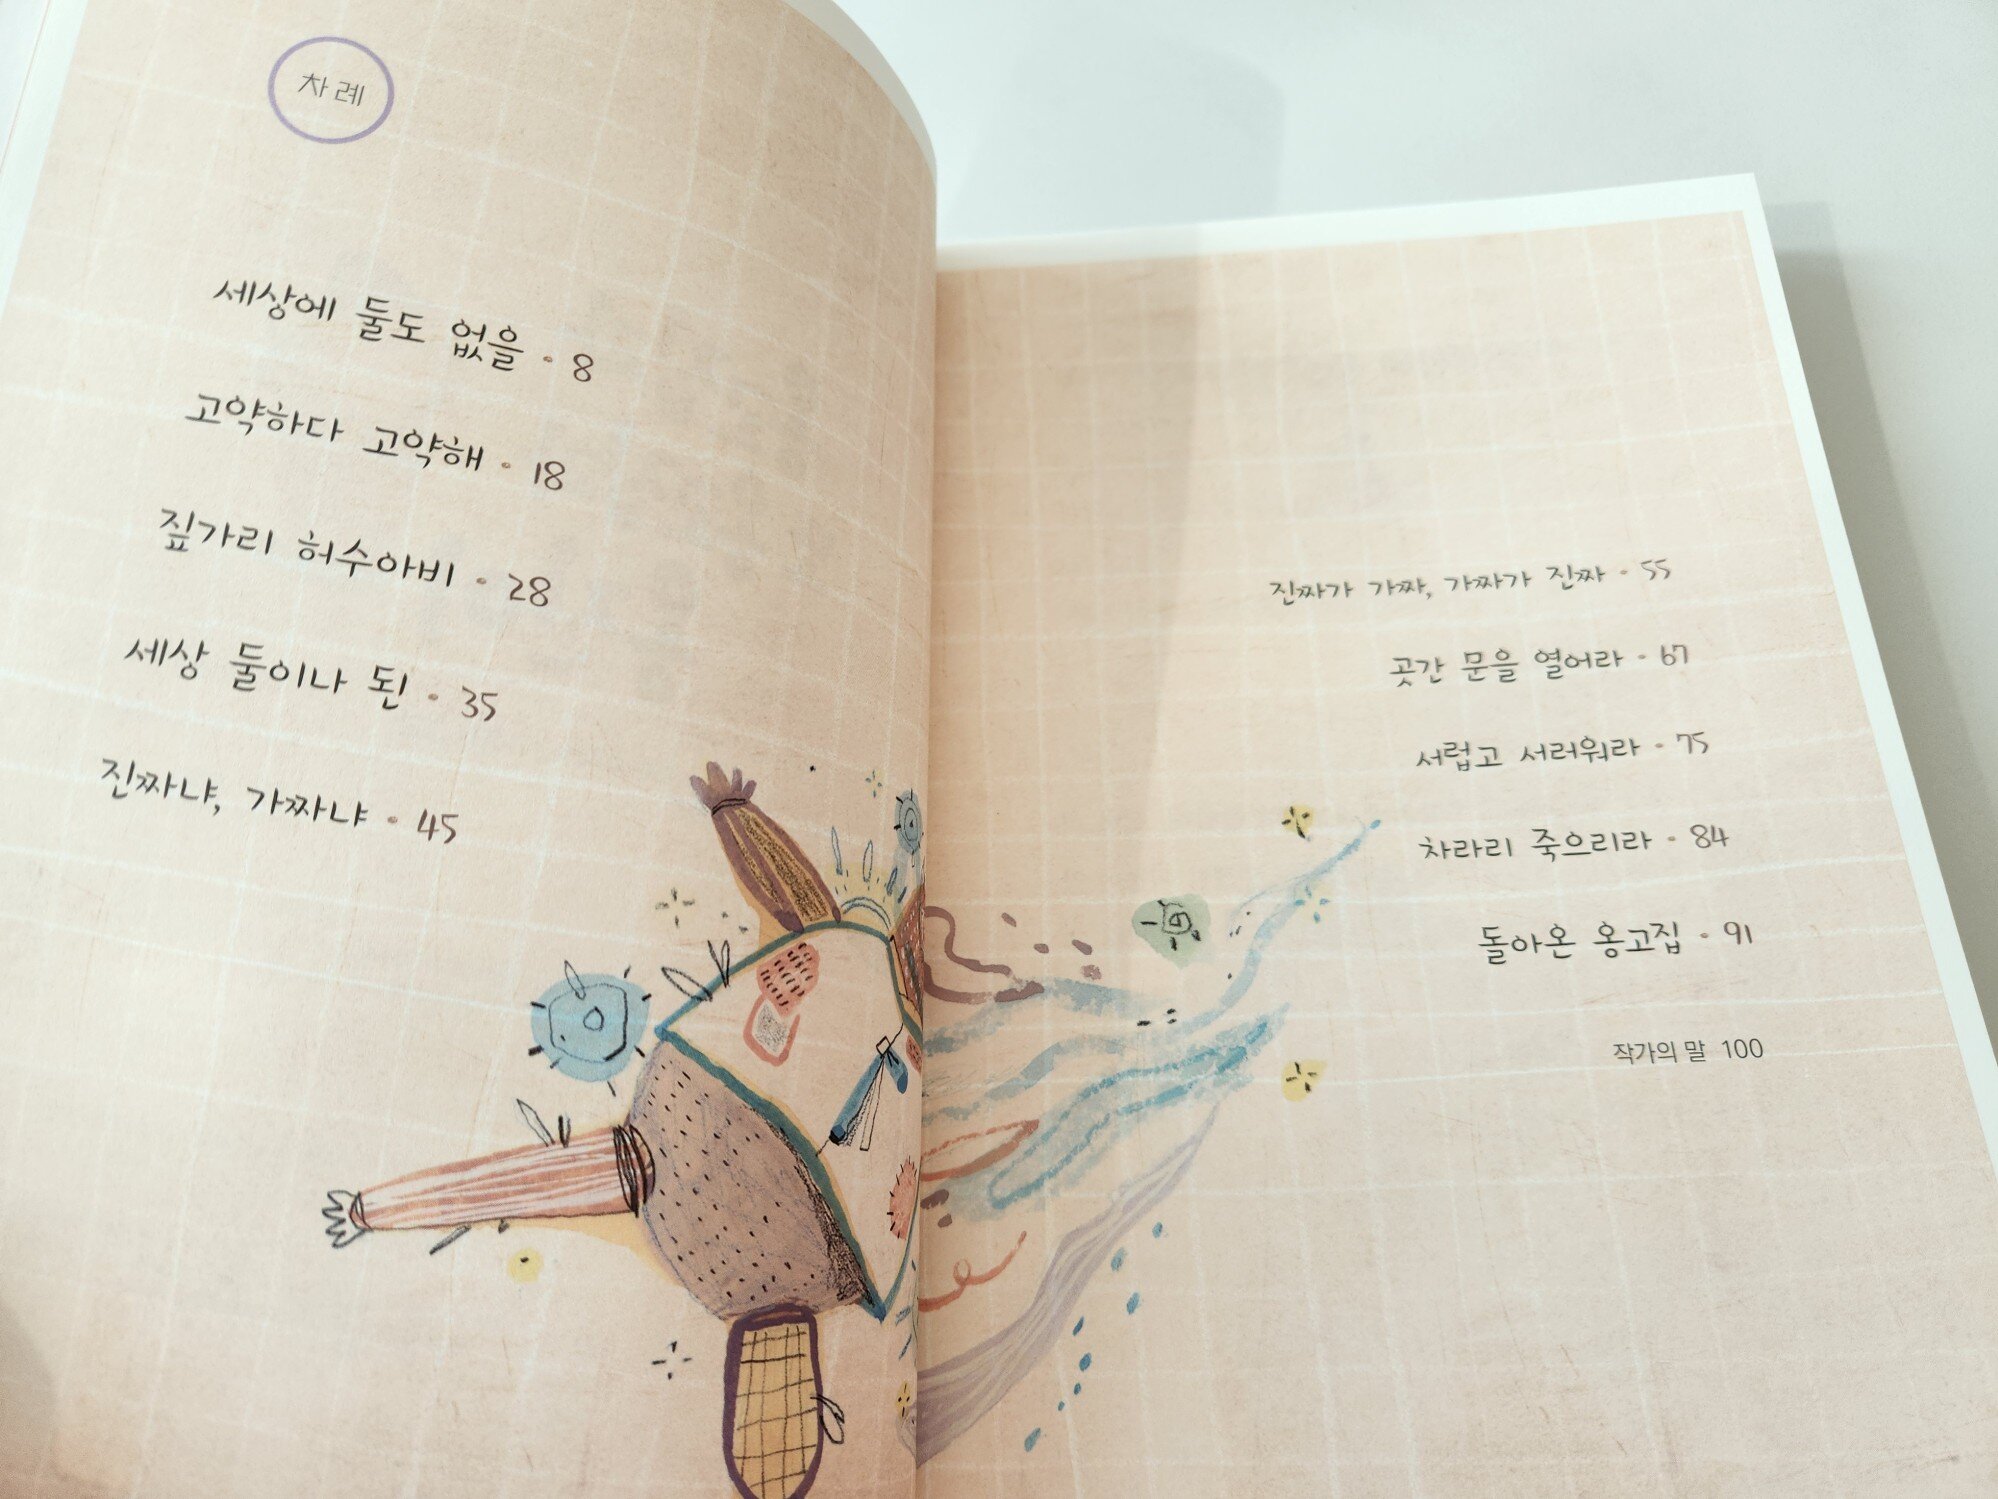 차례
세상에 둘도 없을 · 8
고약하다 고약해 · 18
짚가리 허수아비 · 28
세상 둘이나 된 · 35
진짜냐, 가짜냐 · 45
진짜가 가짜, 가짜가 진짜 · 55
곳간 문을 열어라 · 67
서럽고 서러워라 · 75
차라리 죽으리라 · 84
돌아온 옹고집 · 91
작가의 말 100